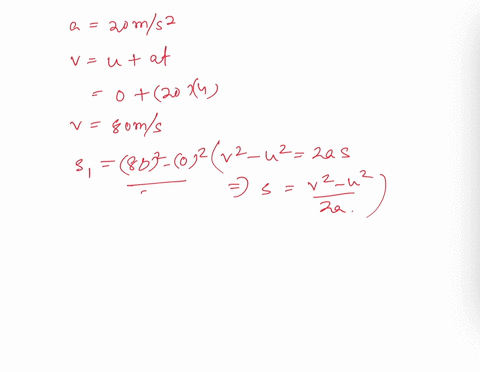 a = 20m/s2
v = u + at
= 0 + (20)(4)
v = 80m/s
s1 = (80)² - (0)² (v² - u² = 2as
⇒ s = v² - u² / 2a.)